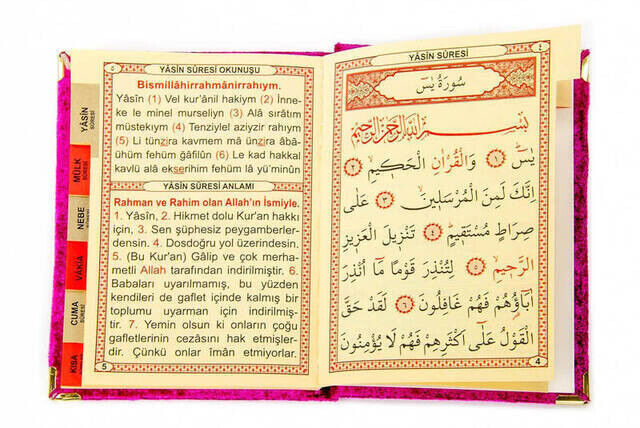 YÂSİN SÛRESİ OKUNUŞU
Bismillâhirrahmânirrahıym.
Yâsîn (1) Vel kur'ânil hakiym (2) İnne-
ke le minel murseliyn (3) Alâ sırâtım
müstekıym (4) Tenziylel aziyzir rahıym
(5) Li tünzira kavmem mâ ünzira âbâ-
ühüm fehüm ğâfilûn (6) Le kad hakkal
kavlü alâ ekserihim fehüm lâ yü'minûn
YÂSİN SÛRESİ ANLAMI
Rahman ve Rahim olan Allah'ın İsmiyle.
1. Yâsîn, 2. Hikmet dolu Kur'an hakkı
için, 3. Sen şüphesiz peygamberler-
densin. 4. Dosdoğru yol üzerindesin.
5. (Bu Kur'an) Gâlip ve çok merha-
metli Allah tarafından indirilmiştir. 6.
Babaları uyarılmamış, bu yüzden
kendileri de gaflet içinde kalmış bir
toplumu uyarman için indirilmiş-
tir. 7. Yemin olsun ki onların çoğu
gafletlerinin cezasını hak etmişler-
dir. Çünkü onlar îman etmiyorlar.
5
YÂSİN SÛRESİ
٤
سُورَةُ يٰسٓ
بِسْمِ اللّٰهِ الرَّحْمٰنِ الرَّحِيمِ
يٰسٓ ۝١ وَالْقُرْاٰنِ الْحَكِيمِ ۝٢
اِنَّكَ لَمِنَ الْمُرْسَلِينَ ۝٣ عَلٰى
صِرَاطٍ مُسْتَقِيمٍ ۝٤ تَنْزِيلَ الْعَزِيزِ
الرَّحِيمِ ۝٥ لِتُنْذِرَ قَوْمًا مَٓا اُنْذِرَ
اٰبَٓاؤُهُمْ فَهُمْ غَافِلُونَ ۝٦ لَقَدْ حَقَّ
الْقَوْلُ عَلٰٓى اَكْثَرِهِمْ فَهُمْ لَا يُؤْمِنُونَ
4
YÂSİN
SÛRESİ
MÜLK
SÛRESİ
NEBE
SÛRESİ
VAKIA
CUMA
SÛRESİ
KISA